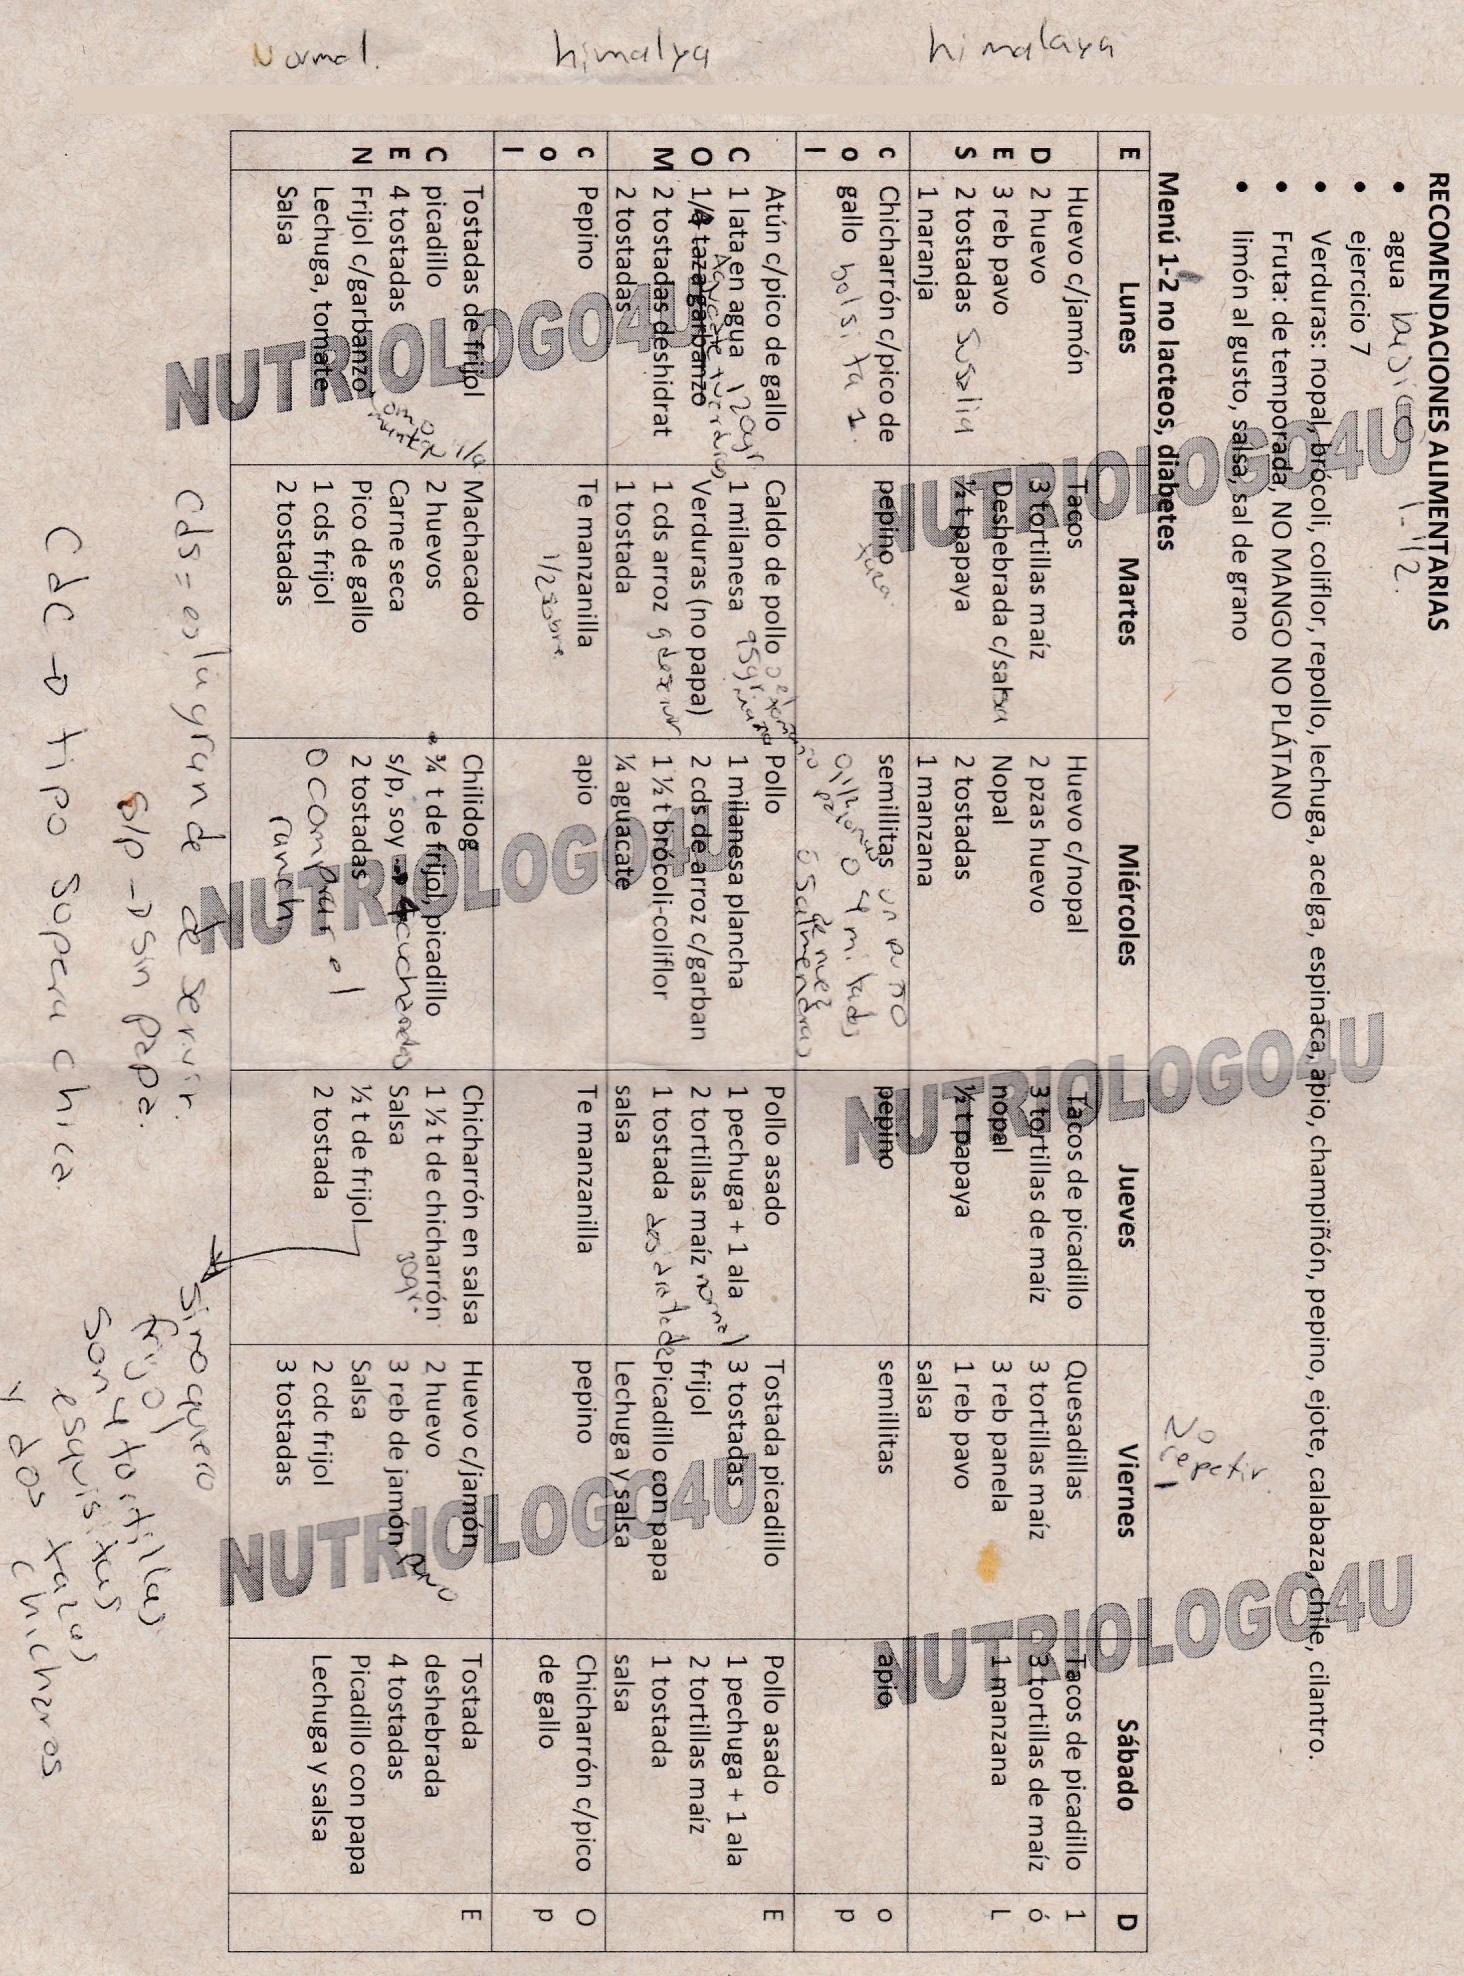 RECOMENDACIONES ALIMENTARIAS
• agua 1-1/2.
• ejercicio 7
• Verduras: nopal, brócoli, coliflor, repollo, lechuga, acelga, espinaca, apio, champiñón, pepino, ejote, calabaza, chile, cilantro.
• Fruta: de temporada, NO MANGO NO PLÁTANO
• limón al gusto, salsa, sal de grano
No
repetir
Menú 1-2 no lacteos, diabetes
E Lunes Martes Miércoles Jueves Viernes Sábado D
D
E
S
Huevo c/jamón
2 huevo
3 reb pavo
2 tostadas Susalia
1 naranja
Tacos
3 tortillas maíz
Deshebrada c/salsa
½ t papaya
Huevo c/nopal
2 pzas huevo
Nopal
2 tostadas
1 manzana
Tacos de picadillo
3 tortillas de maíz
nopal
½ t papaya
Quesadillas
3 tortillas maíz
3 reb panela
1 reb pavo
salsa
Tacos de picadillo
3 tortillas de maíz
1 manzana
1
ó
L
c
o
l
Chicharrón c/pico de
gallo bolsita 1.
pepino
taza.
semillitas un puño
o 4 mitades
de nuez
o 5 almendras
pepino
semillitas
apio
o
p
C
O
M
Atún c/pico de gallo
1 lata en agua 120gr
1/4 taza garbanzo
Aguacate
2 tostadas deshidrat
2 tostadas
Caldo de pollo
1 milanesa 95gr
Verduras (no papa)
1 cds arroz
1 tostada
Pollo
1 milanesa plancha
2 cds de arroz c/garban
1 ½ t brócoli-coliflor
¼ aguacate
Pollo asado
1 pechuga + 1 ala
2 tortillas maíz normal
1 tostada
salsa
Tostada picadillo
3 tostadas
frijol
Picadillo con papa
Lechuga y salsa
Pollo asado
1 pechuga + 1 ala
2 tortillas maíz
1 tostada
salsa
E
c
o
l
Pepino
Te manzanilla
1/2 sobre.
apio
Te manzanilla
pepino
Chicharrón c/pico
de gallo
O
p
C
E
N
Tostadas de frijol
picadillo
4 tostadas
Frijol c/garbanzo
Lechuga, tomate
Salsa
Machacado
2 huevos
Carne seca
Pico de gallo
1 cds frijol
2 tostadas
Chilidog
¾ t de frijol, picadillo
s/p, soy 4 cucharadas
2 tostadas
O comprar el
ranch.
Chicharrón en salsa
1 ½ t de chicharrón
30gr.
Salsa
½ t de frijol
2 tostada
Huevo c/jamón
2 huevo
3 reb de jamón pavo
Salsa
2 cdc frijol
3 tostadas
Tostada
deshebrada
4 tostadas
Picadillo con papa
Lechuga y salsa
E
cds = es la grande de servir.
s/p → sin papa.
Cdc → tipo sopera chica.
Si no quiero
frijol
son 4 tortillas
esquisitas
y dos tazas
chicharos
himalaya
himalya
Normal.
NUTRIOLOGO4U
NUTRIOLOGO4U
NUTRIOLOGO4U
NUTRIOLOGO4U
NUTRIOLOGO4U
NUTRIOLOGO4U
NUTRIOLOGO4U